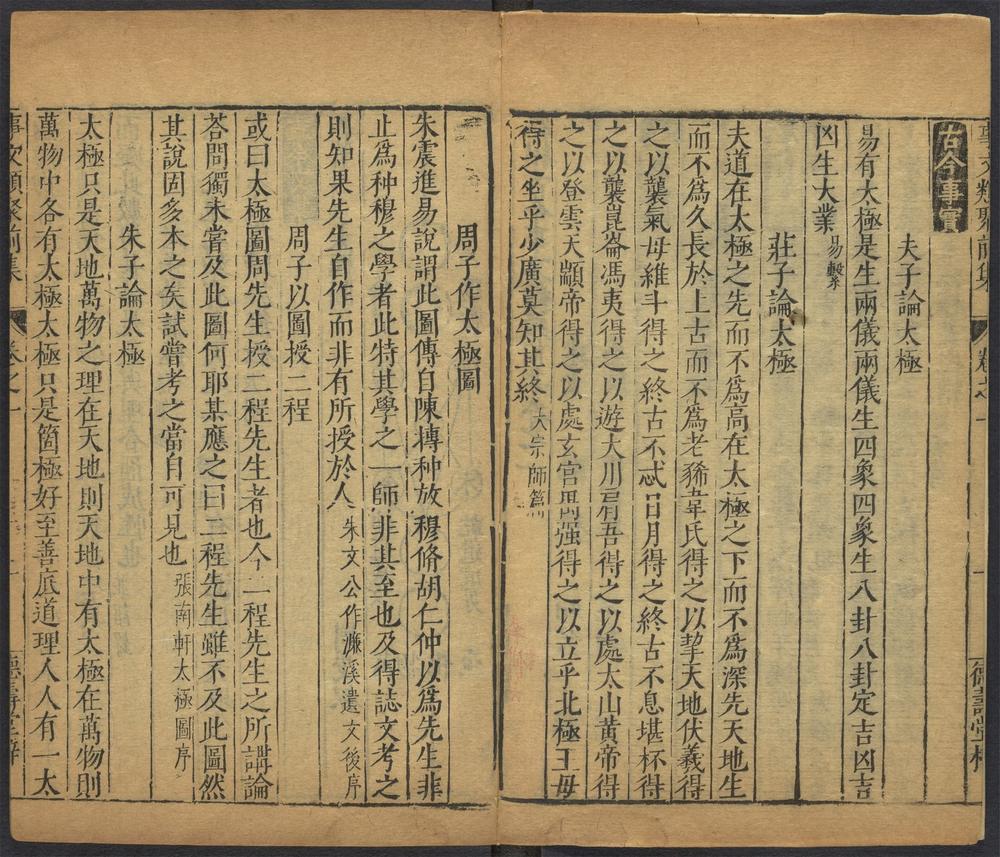 事文類聚前集
卷之一
一
德壽堂梓
古今事實
夫子論太極
易有太極是生兩儀兩儀生四象四象生八卦八卦定吉凶吉
凶生大業易繫
莊子論太極
夫道在太極之先而不為高在太極之下而不為深先天地生
而不爲久長於上古而不爲老狶韋氏得之以挈天地伏羲得
之以襲氣母維斗得之終古不忒日月得之終古不息堪杯得
之以襲崑崙馮夷得之以遊大川肩吾得之以處太山黃帝得
之以登雲天顓帝得之以處玄宮禺强得之以立乎北極王母
得之坐乎少廣莫知其終大宗師篇
周子作太極圖
朱震進易說謂此圖傳自陳摶种放穆脩胡仁仲以爲先生非
止爲种穆之學者此特其學之一師非其至也及得誌文考之
則知果先生自作而非有所授於人朱文公作濂溪遺文後序
周子以圖授二程
或曰太極圖周先生授二程先生者也今二程先生之所講論
荅問獨未嘗及此圖何耶某應之曰二程先生雖不及此圖然
其說固多本之矣試嘗考之當自可見也張南軒太極圖序
朱子論太極
太極只是天地萬物之理在天地則天地中有太極在萬物則
萬物中各有太極太極只是箇極好至善底道理人人有一太
事文類聚前集
卷之一
德壽堂梓